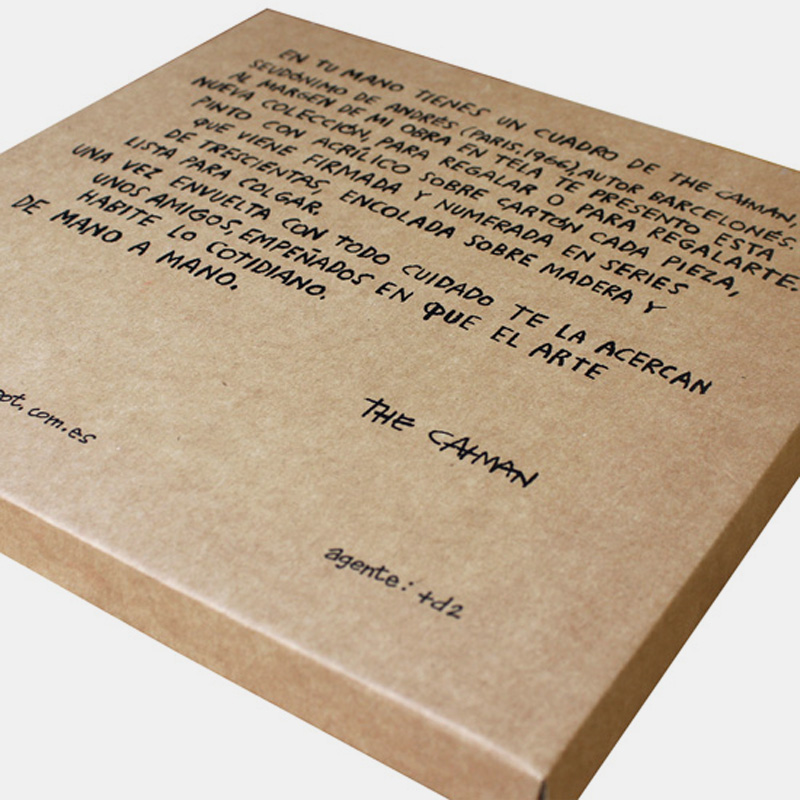 EN TU MANO TIENES UN CUADRO DE THE CAIMAN,
SEUDÓNIMO DE ANDRÉS (PARIS, 1966), AUTOR BARCELONÉS.
AL MARGEN DE MI OBRA EN TELA TE PRESENTO ESTA
NUEVA COLECCIÓN, PARA REGALAR O PARA REGALARTE.
PINTO CON ACRÍLICO SOBRE CARTÓN CADA PIEZA,
QUE VIENE FIRMADA Y NUMERADA EN SERIES
DE TRESCIENTAS, ENCOLADA SOBRE MADERA Y
LISTA PARA COLGAR.
UNA VEZ ENVUELTA CON TODO CUIDADO TE LA ACERCAN
UNOS AMIGOS, EMPEÑADOS EN QUE EL ARTE
HABITE LO COTIDIANO.
DE MANO A MANO.
THE CAIMAN
ot.com.es
agente: +d2